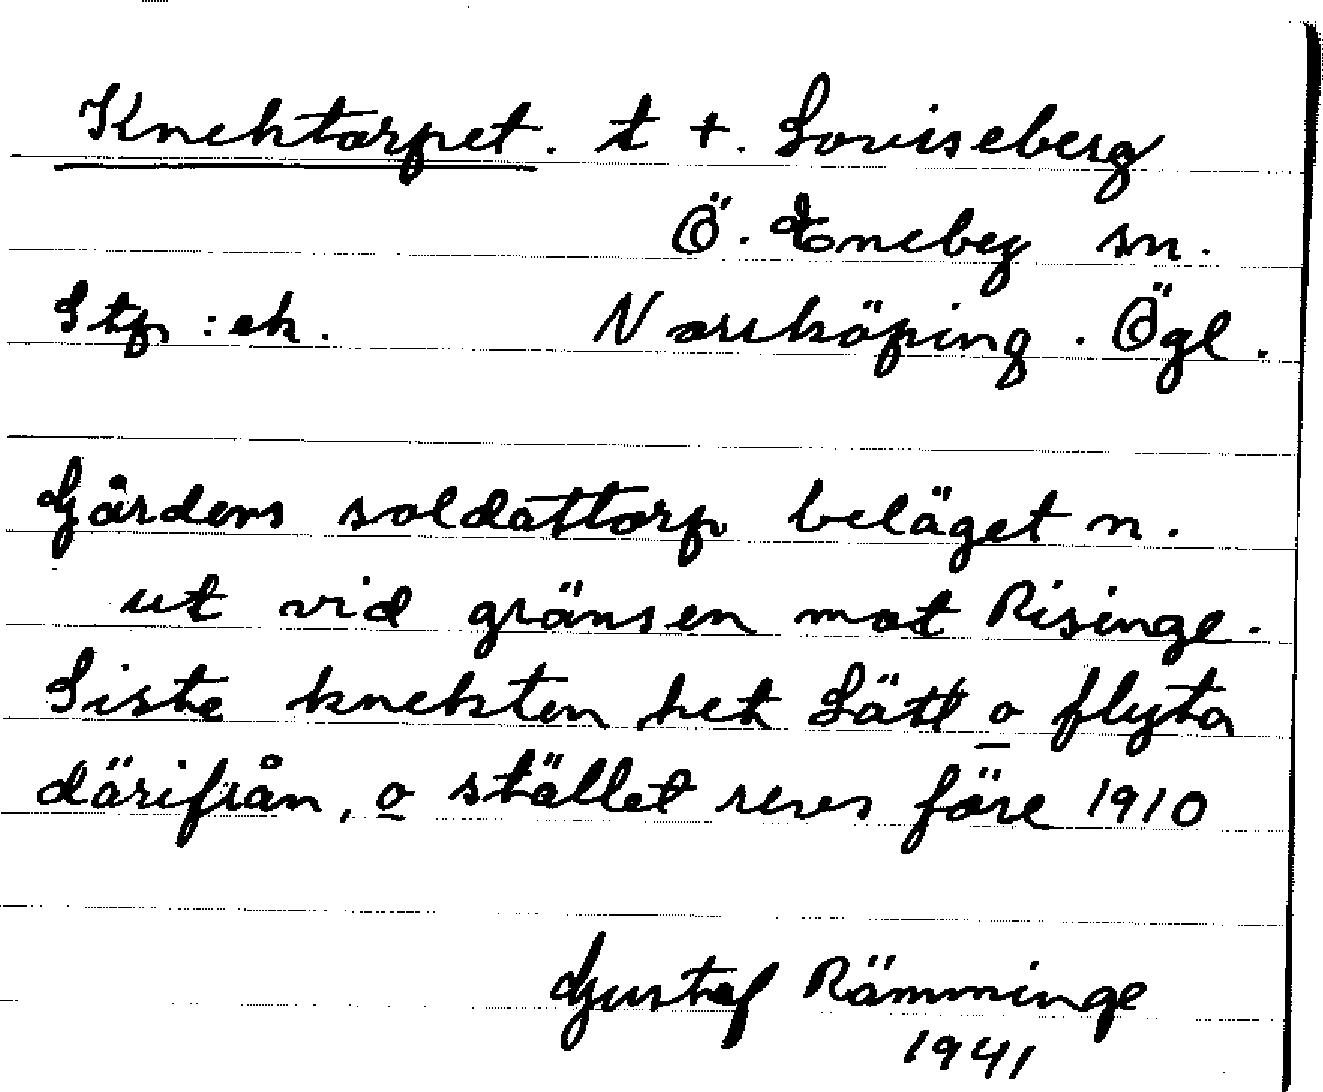 Knektorpet. t +. Loviseberg
Ö. Eneby sn.
Stp : ek. Norrköping. Ögl.
Gårdens soldattorp beläget n.
ut vid gränsen mot Risinge.
Siste knekten het Lätt o flyta
därifrån, o stället revs före 1910
Gustaf Rämminge
1941